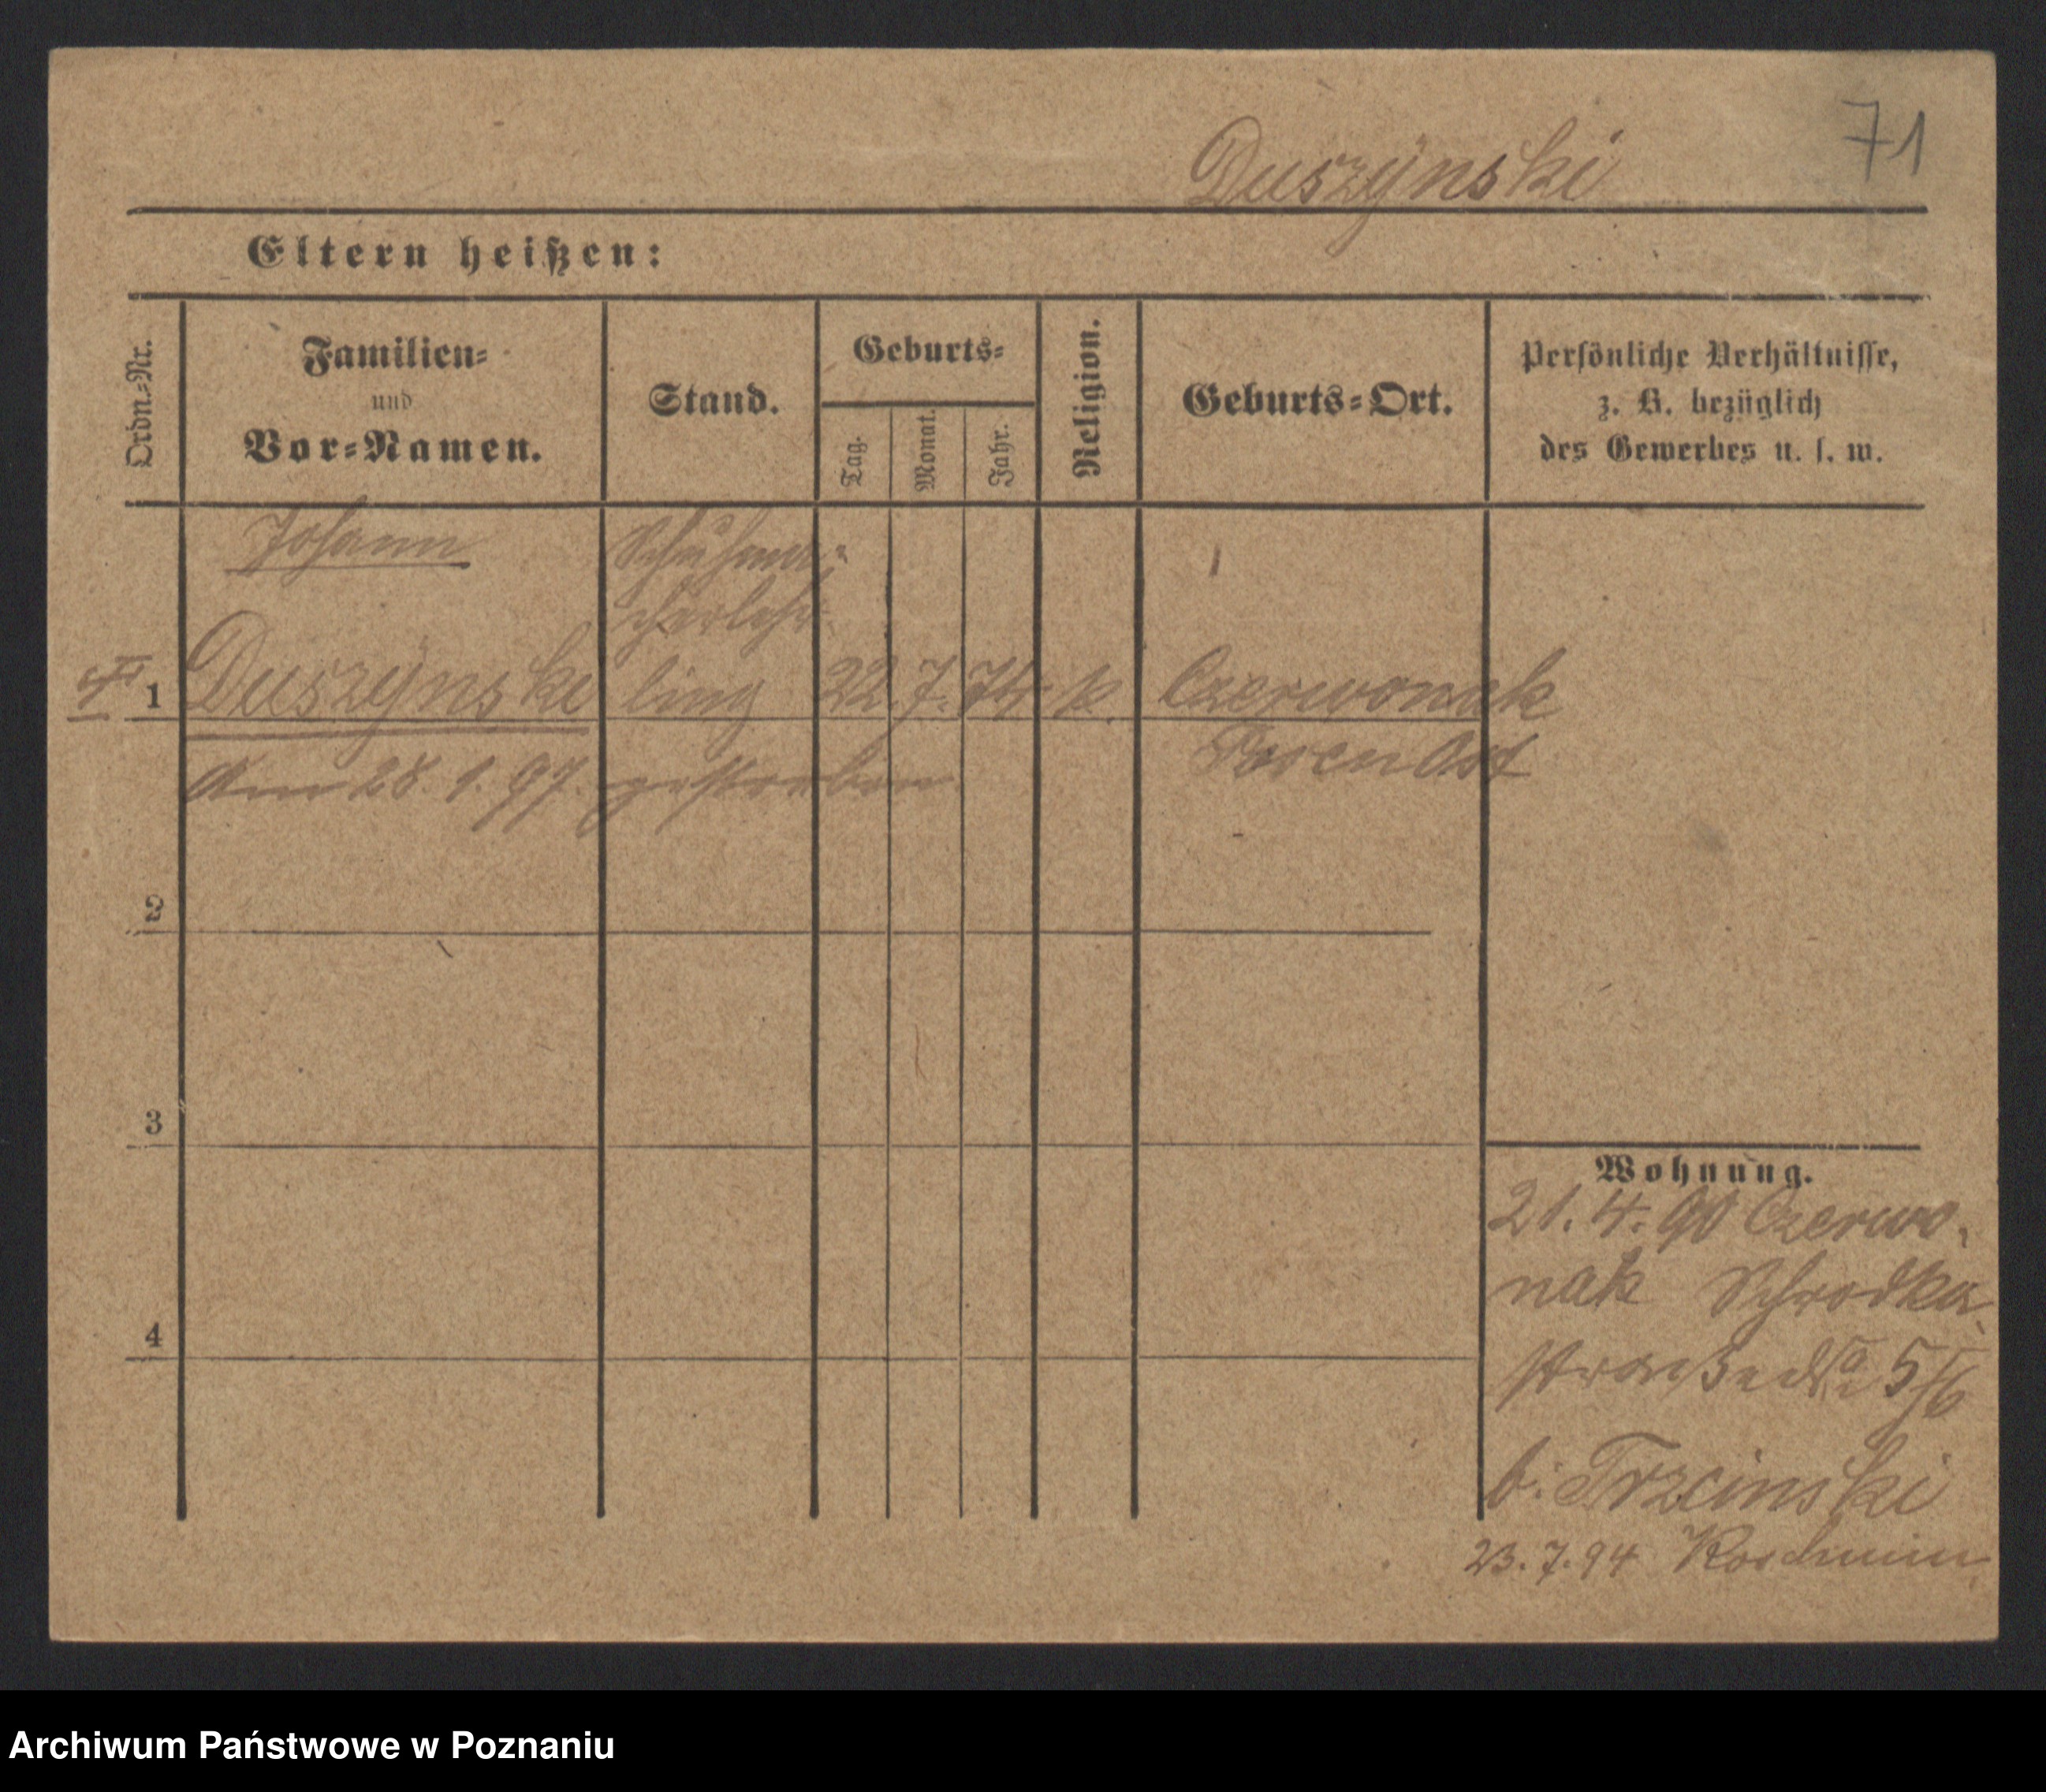 71
Duszÿnski
Eltern heißen:
Ordn.=Nr.
Familien=
und
Vor=Namen.
Stand.
Geburts=
Tag.
Monat.
Jahr.
Religion.
Geburts=Ort.
Persönliche Verhältnisse,
z. B. bezüglich
des Gewerbes u. s. w.
Johann
Schuhma=
cherlehr
1 Duszÿnski ling 22. 7. 74. k. Czerwonak
Am 28. 1. 97. gestorben Posen Ost
2
3
4
Wohnung.
21. 4. 90 Czerwo-
nak Schrodka
straße 5/6
b. Trzcinski
23. 7. 94 Koschmin
Archiwum Państwowe w Poznaniu